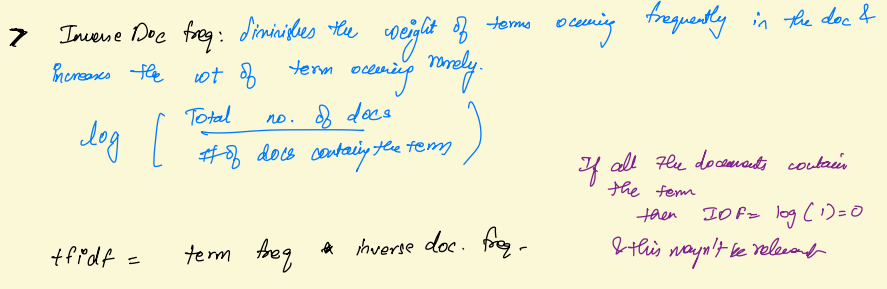 > Inverse Doc freq: diminishes the weight of terms occuring frequently in the doc &
increases the wt of term occuring rarely.
log [ Total no. of docs
# of docs containing the term )
If all the documents contain
the term
then IDF = log(1)=0
& this mayn't be relevant
tfidf = term freq * inverse doc. freq.